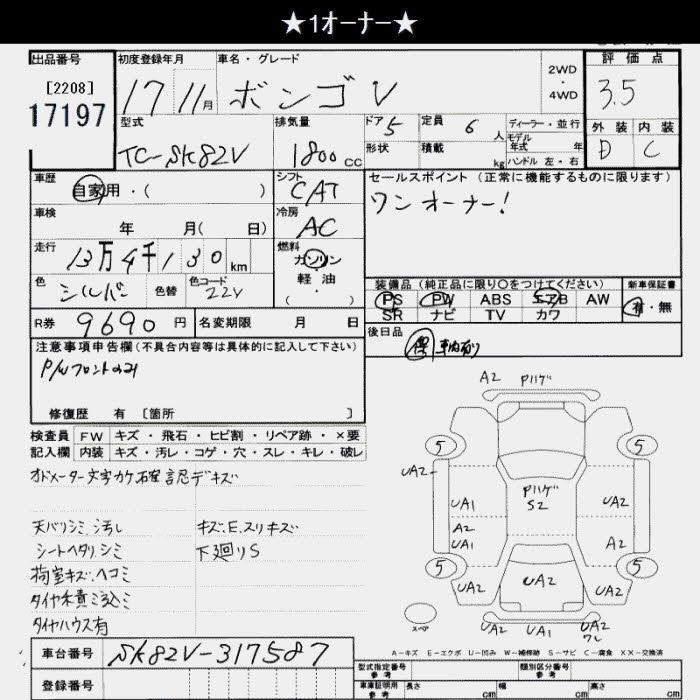 ★1オーナー★
出品番号
[2208]
17197
初度登録年月
17 11月
車名・グレード
ボンゴV
2WD
・
4WD
評価点
3.5
外装 内装
D C
型式
TC-SK82V
排気量
1800cc
ドア 5
形状
定員 6人
積載 kg
ディーラー・並行
モデル年式 年
ハンドル 左・右
車歴
自家用・( )
シフト
CAT
セールスポイント (正常に機能するものに限ります)
ワンオーナー!
車検
年 月( 日)
冷房
AC
走行
13万4千130km
燃料
ガソリン
・
軽油
( )
色
シルバー
色替
色コード
22V
装備品(純正品に限り〇をつけてください)
PS PW ABS エアB AW
SR ナビ TV カワ
新車保証書
有・無
R券 9690円
名変期限 月 日
後日品
注意事項申告欄(不具合内容等は具体的に記入して下さい)
P/Wフロントのみ
修復歴 有 [箇所 ]
検査員 FW キズ・飛石・ヒビ割・リペア跡・×要
記入欄 内装 キズ・汚レ・コゲ・穴・スレ・キレ・破レ
オドメーター文字カケ確認忍デキズ
天バリシミ、汚レ
シートヘタリ、シミ
荷室キズ、ヘコミ
タイヤ積ミ込ミ
タイヤハウス有
キズ.E.スリキズ
下廻りS
A2 Pハゲ
5 5
UA2
Pハゲ
S2
UA1 UA2
A2
UA1 A2
5 5
UA2 UA2 UA2
スペア
UA2 UA1 UA2
ワレ
A-キズ E-エクボ U-凹み W-補修跡 S-サビ C-腐食 XX-交換済
車台番号 SK82V-317587
登録番号
型式指定番号
参考
類別区分番号
参考
車庫証明用
参考
長さ cm
幅 cm
高さ cm